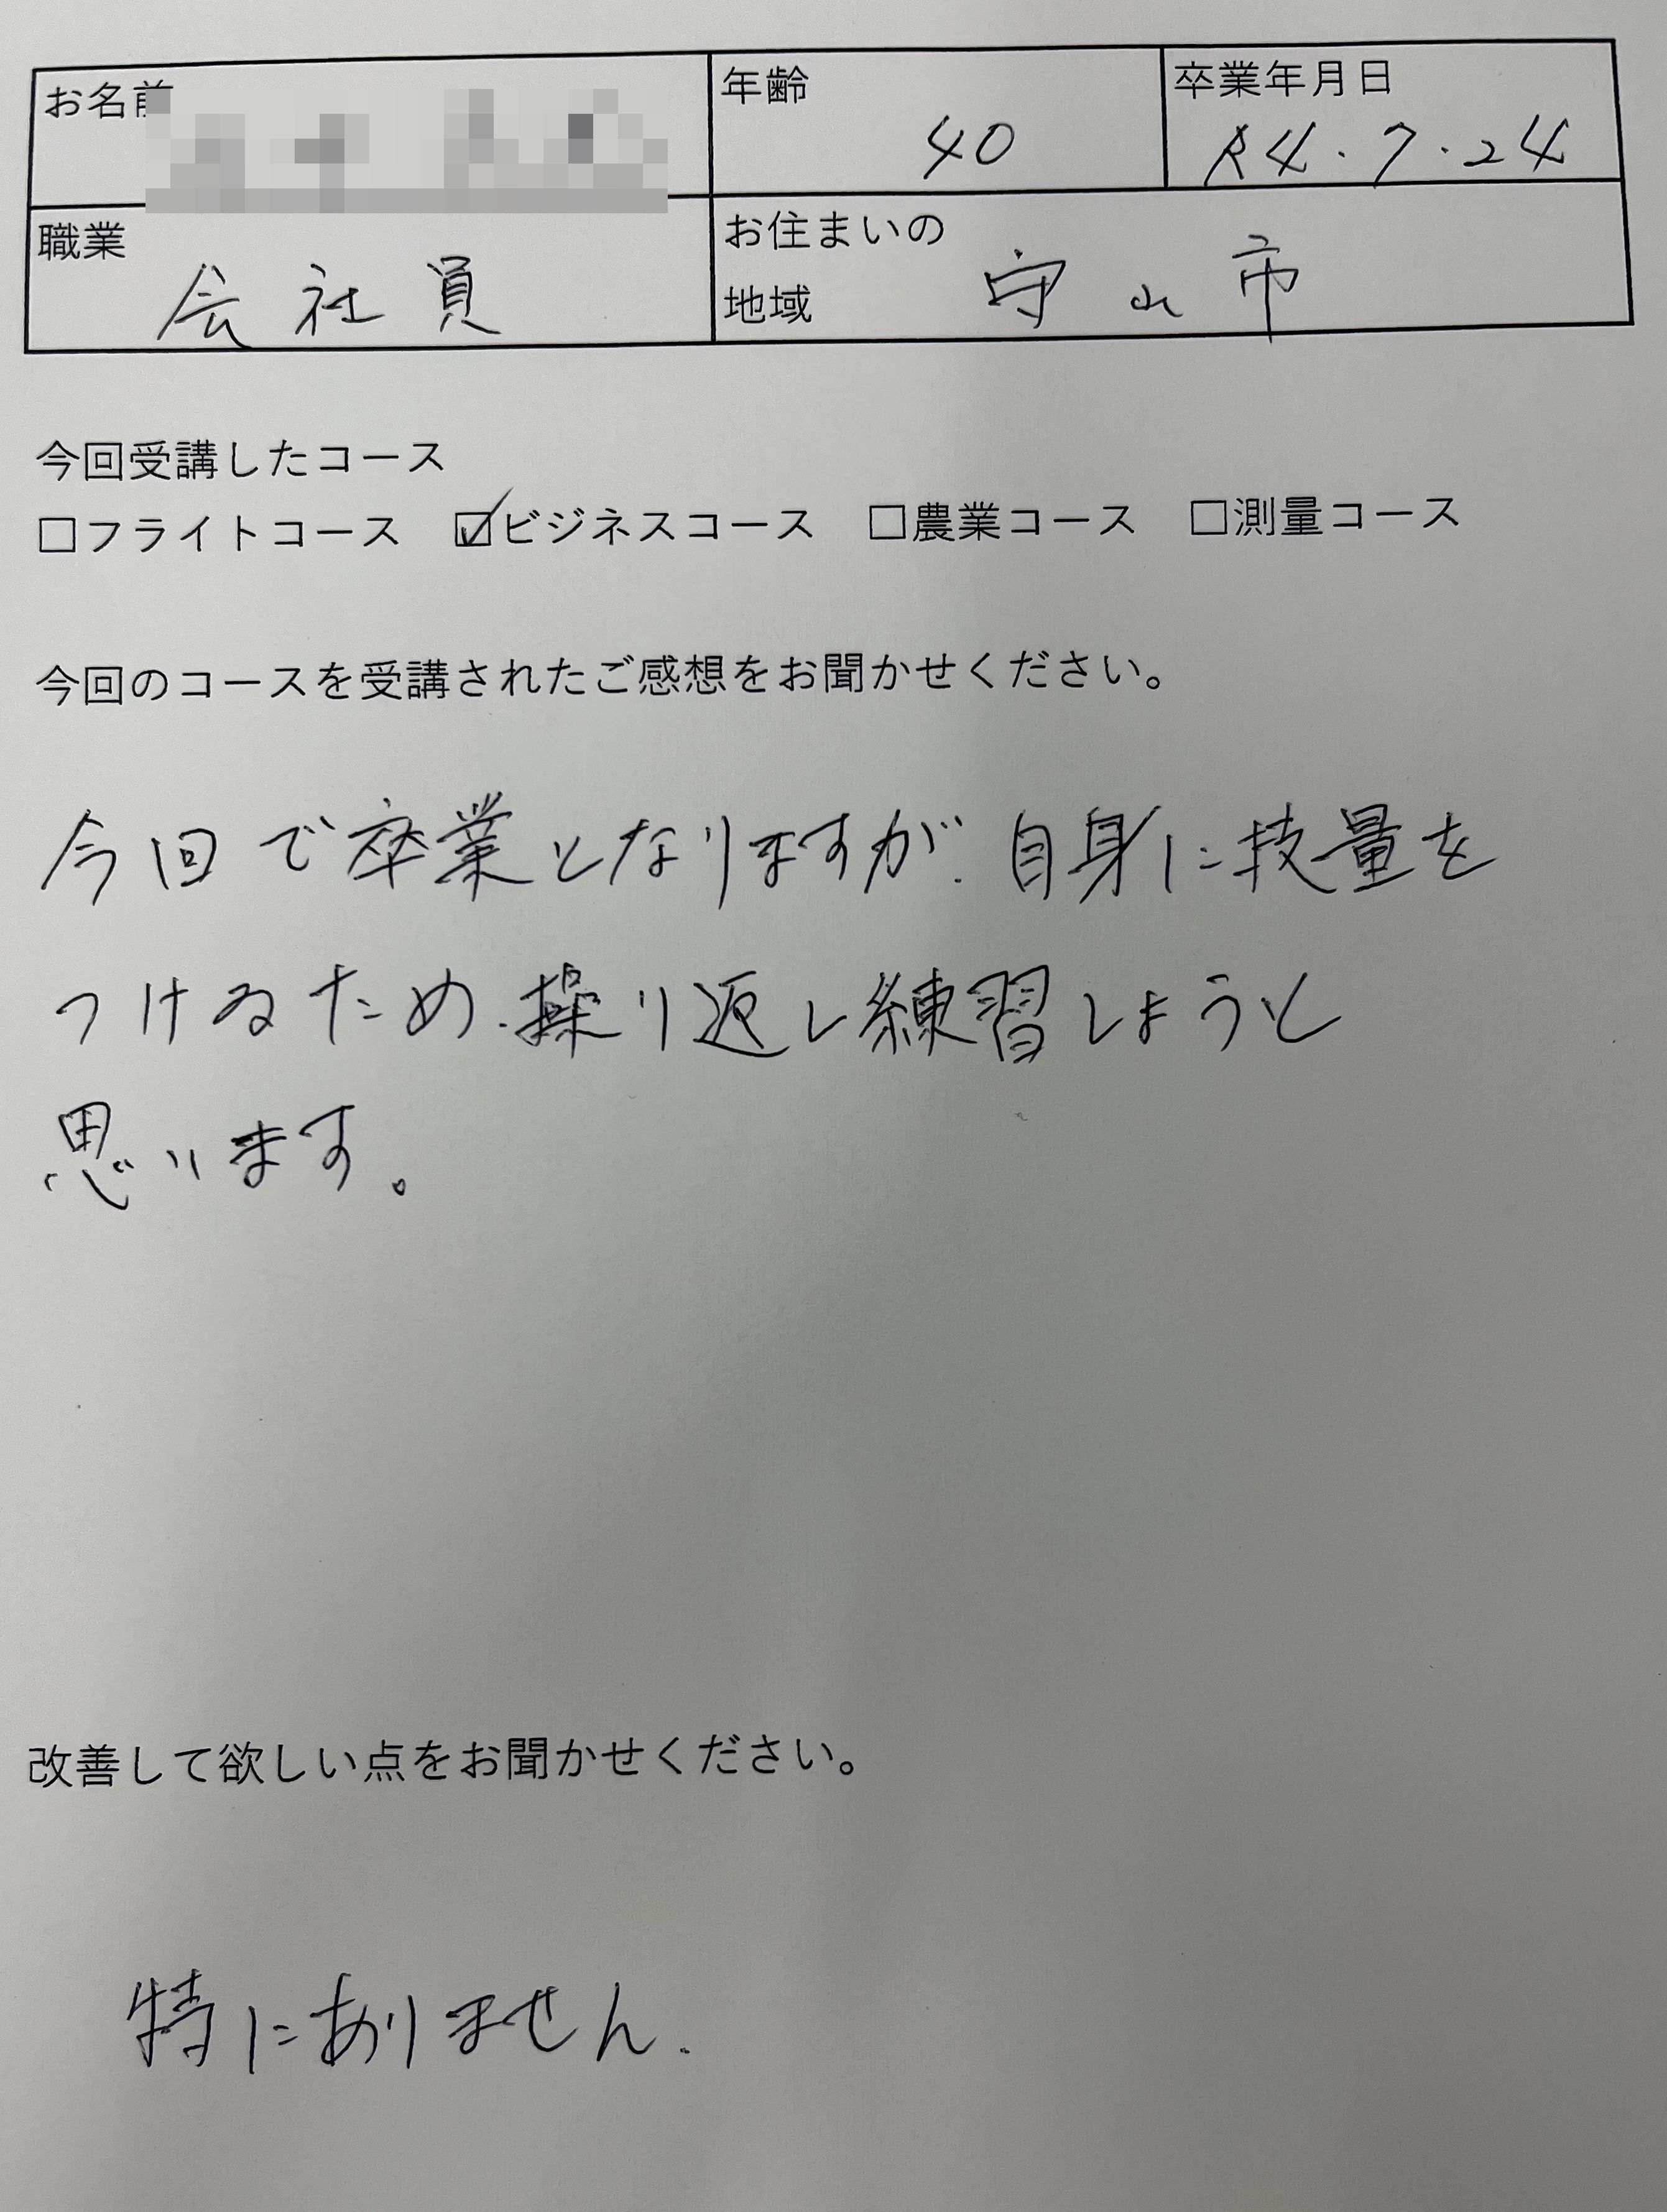 お名前
年齢
卒業年月日
40
R4.7.24
職業
お住まいの
地域
会社員
守山市
今回受講したコース
□フライトコース ☑ビジネスコース □農業コース □測量コース
今回のコースを受講されたご感想をお聞かせください。
今回で卒業となりますが、自身に技量を
つけるため、操り返し練習しようと
思います。
改善して欲しい点をお聞かせください。
特にありません.